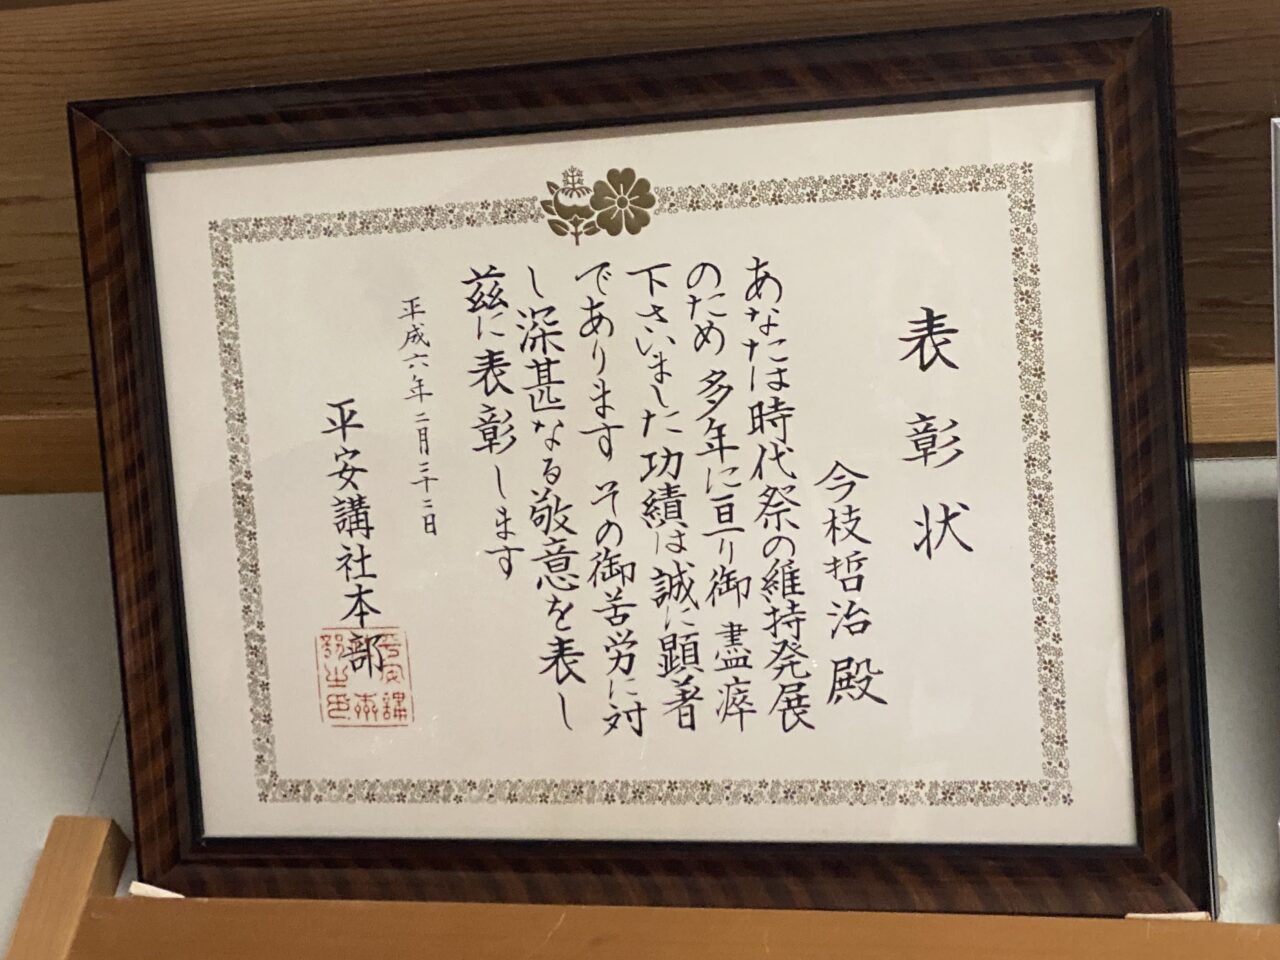 表彰状
今枝哲治殿
あなたは時代祭の維持発展
のため多年に亘り御盡瘁
下さいました功績は誠に顕著
であります その御苦労に対
し深甚なる敬意を表し
茲に表彰します
平成六年二月二十二日
平安講社本部
平安講
社本
部之印